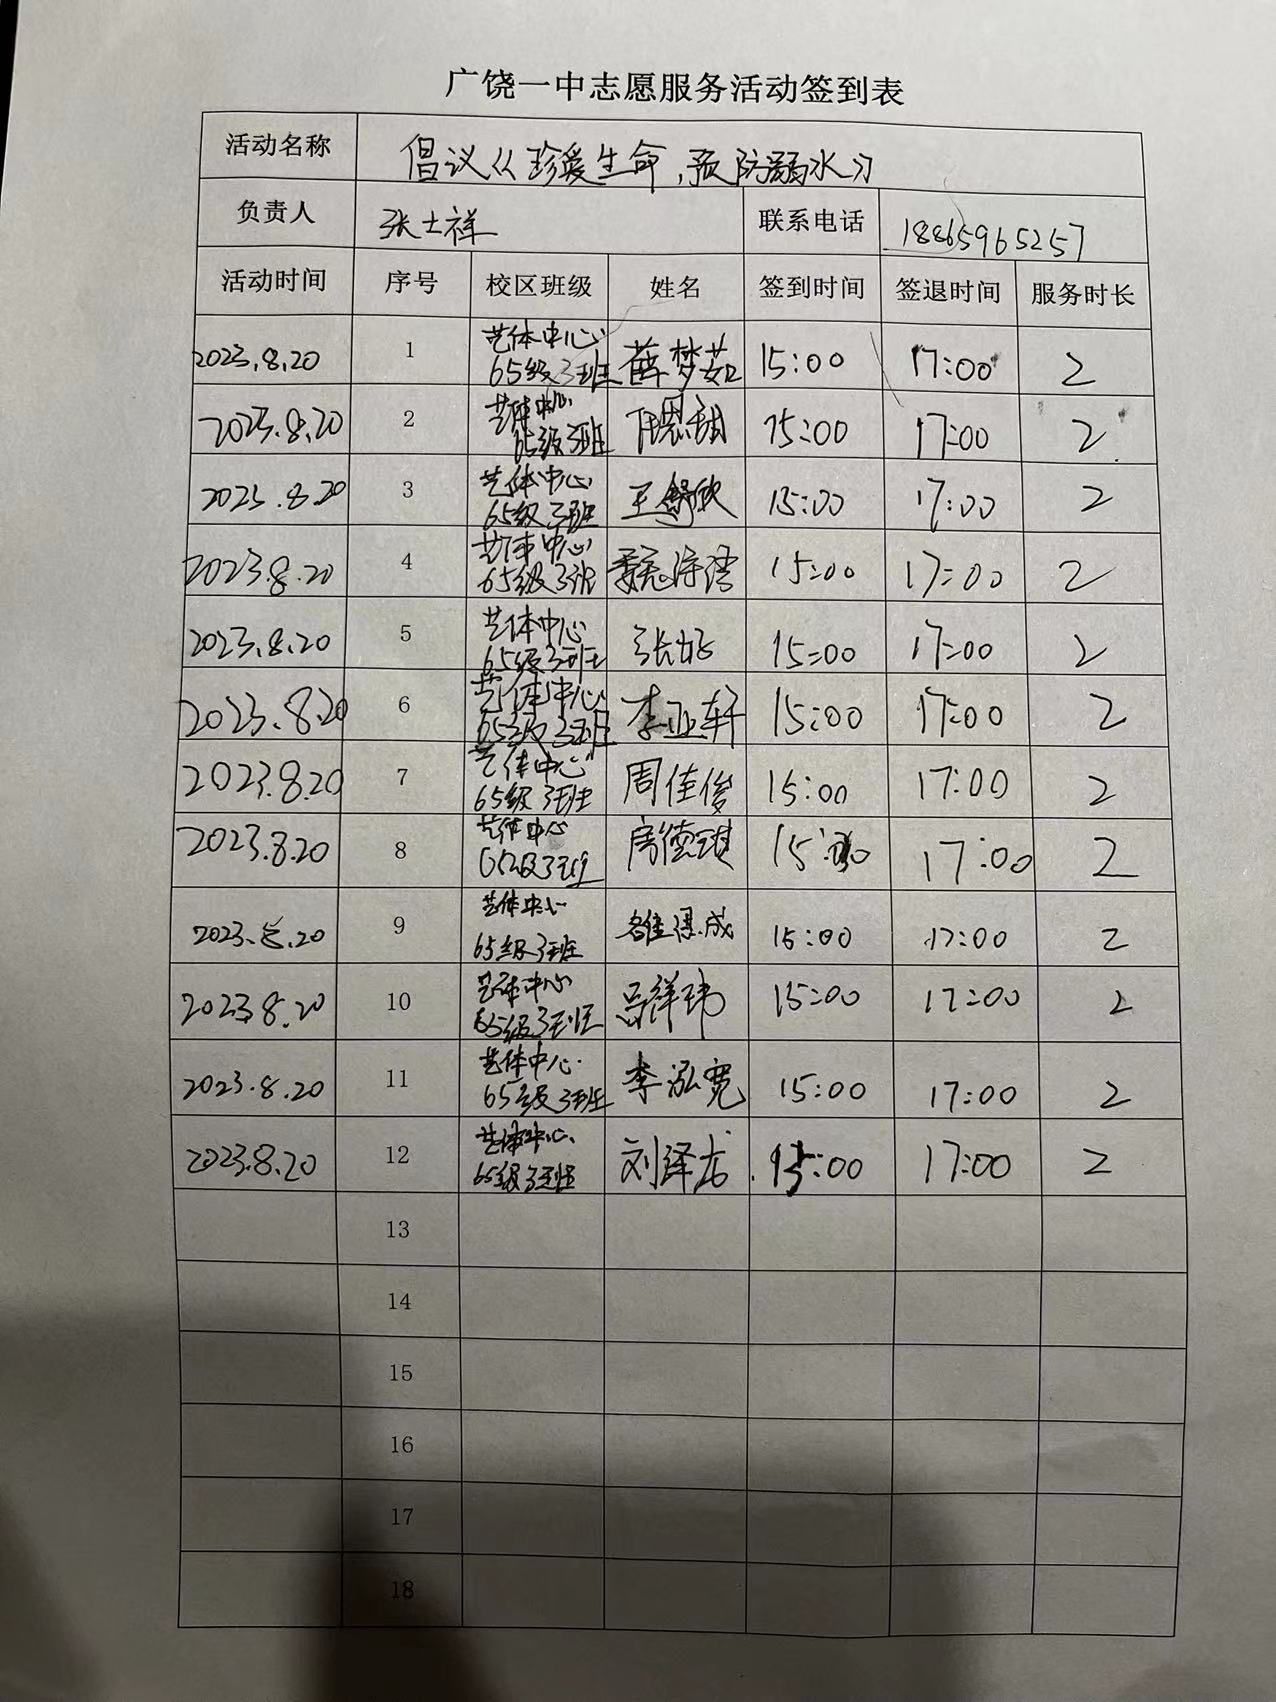 广饶一中志愿服务活动签到表
活动名称 倡议《珍爱生命,预防溺水》
负责人 张士祥 联系电话 18865965257
活动时间 序号 校区班级 姓名 签到时间 签退时间 服务时长
2023.8.20 1 艺体中心65级3班 薛梦茹 15:00 17:00 2
2023.8.20 2 艺体中心65级3班 15:00 17:00 2
2023.8.20 3 艺体中心65级3班 王舒欣 15:00 17:00 2
2023.8.20 4 艺体中心65级3班 15:00 17:00 2
2023.8.20 5 艺体中心65级3班 15:00 17:00 2
2023.8.20 6 艺体中心65级3班 李亚轩 15:00 17:00 2
2023.8.20 7 艺体中心65级3班 周佳俊 15:00 17:00 2
2023.8.20 8 艺体中心65级3班 15:00 17:00 2
2023.8.20 9 艺体中心65级3班 15:00 17:00 2
2023.8.20 10 艺体中心65级3班 15:00 17:00 2
2023.8.20 11 艺体中心65级3班 李泓宽 15:00 17:00 2
2023.8.20 12 艺体中心65级3班 刘泽龙 15:00 17:00 2
13
14
15
16
17
18